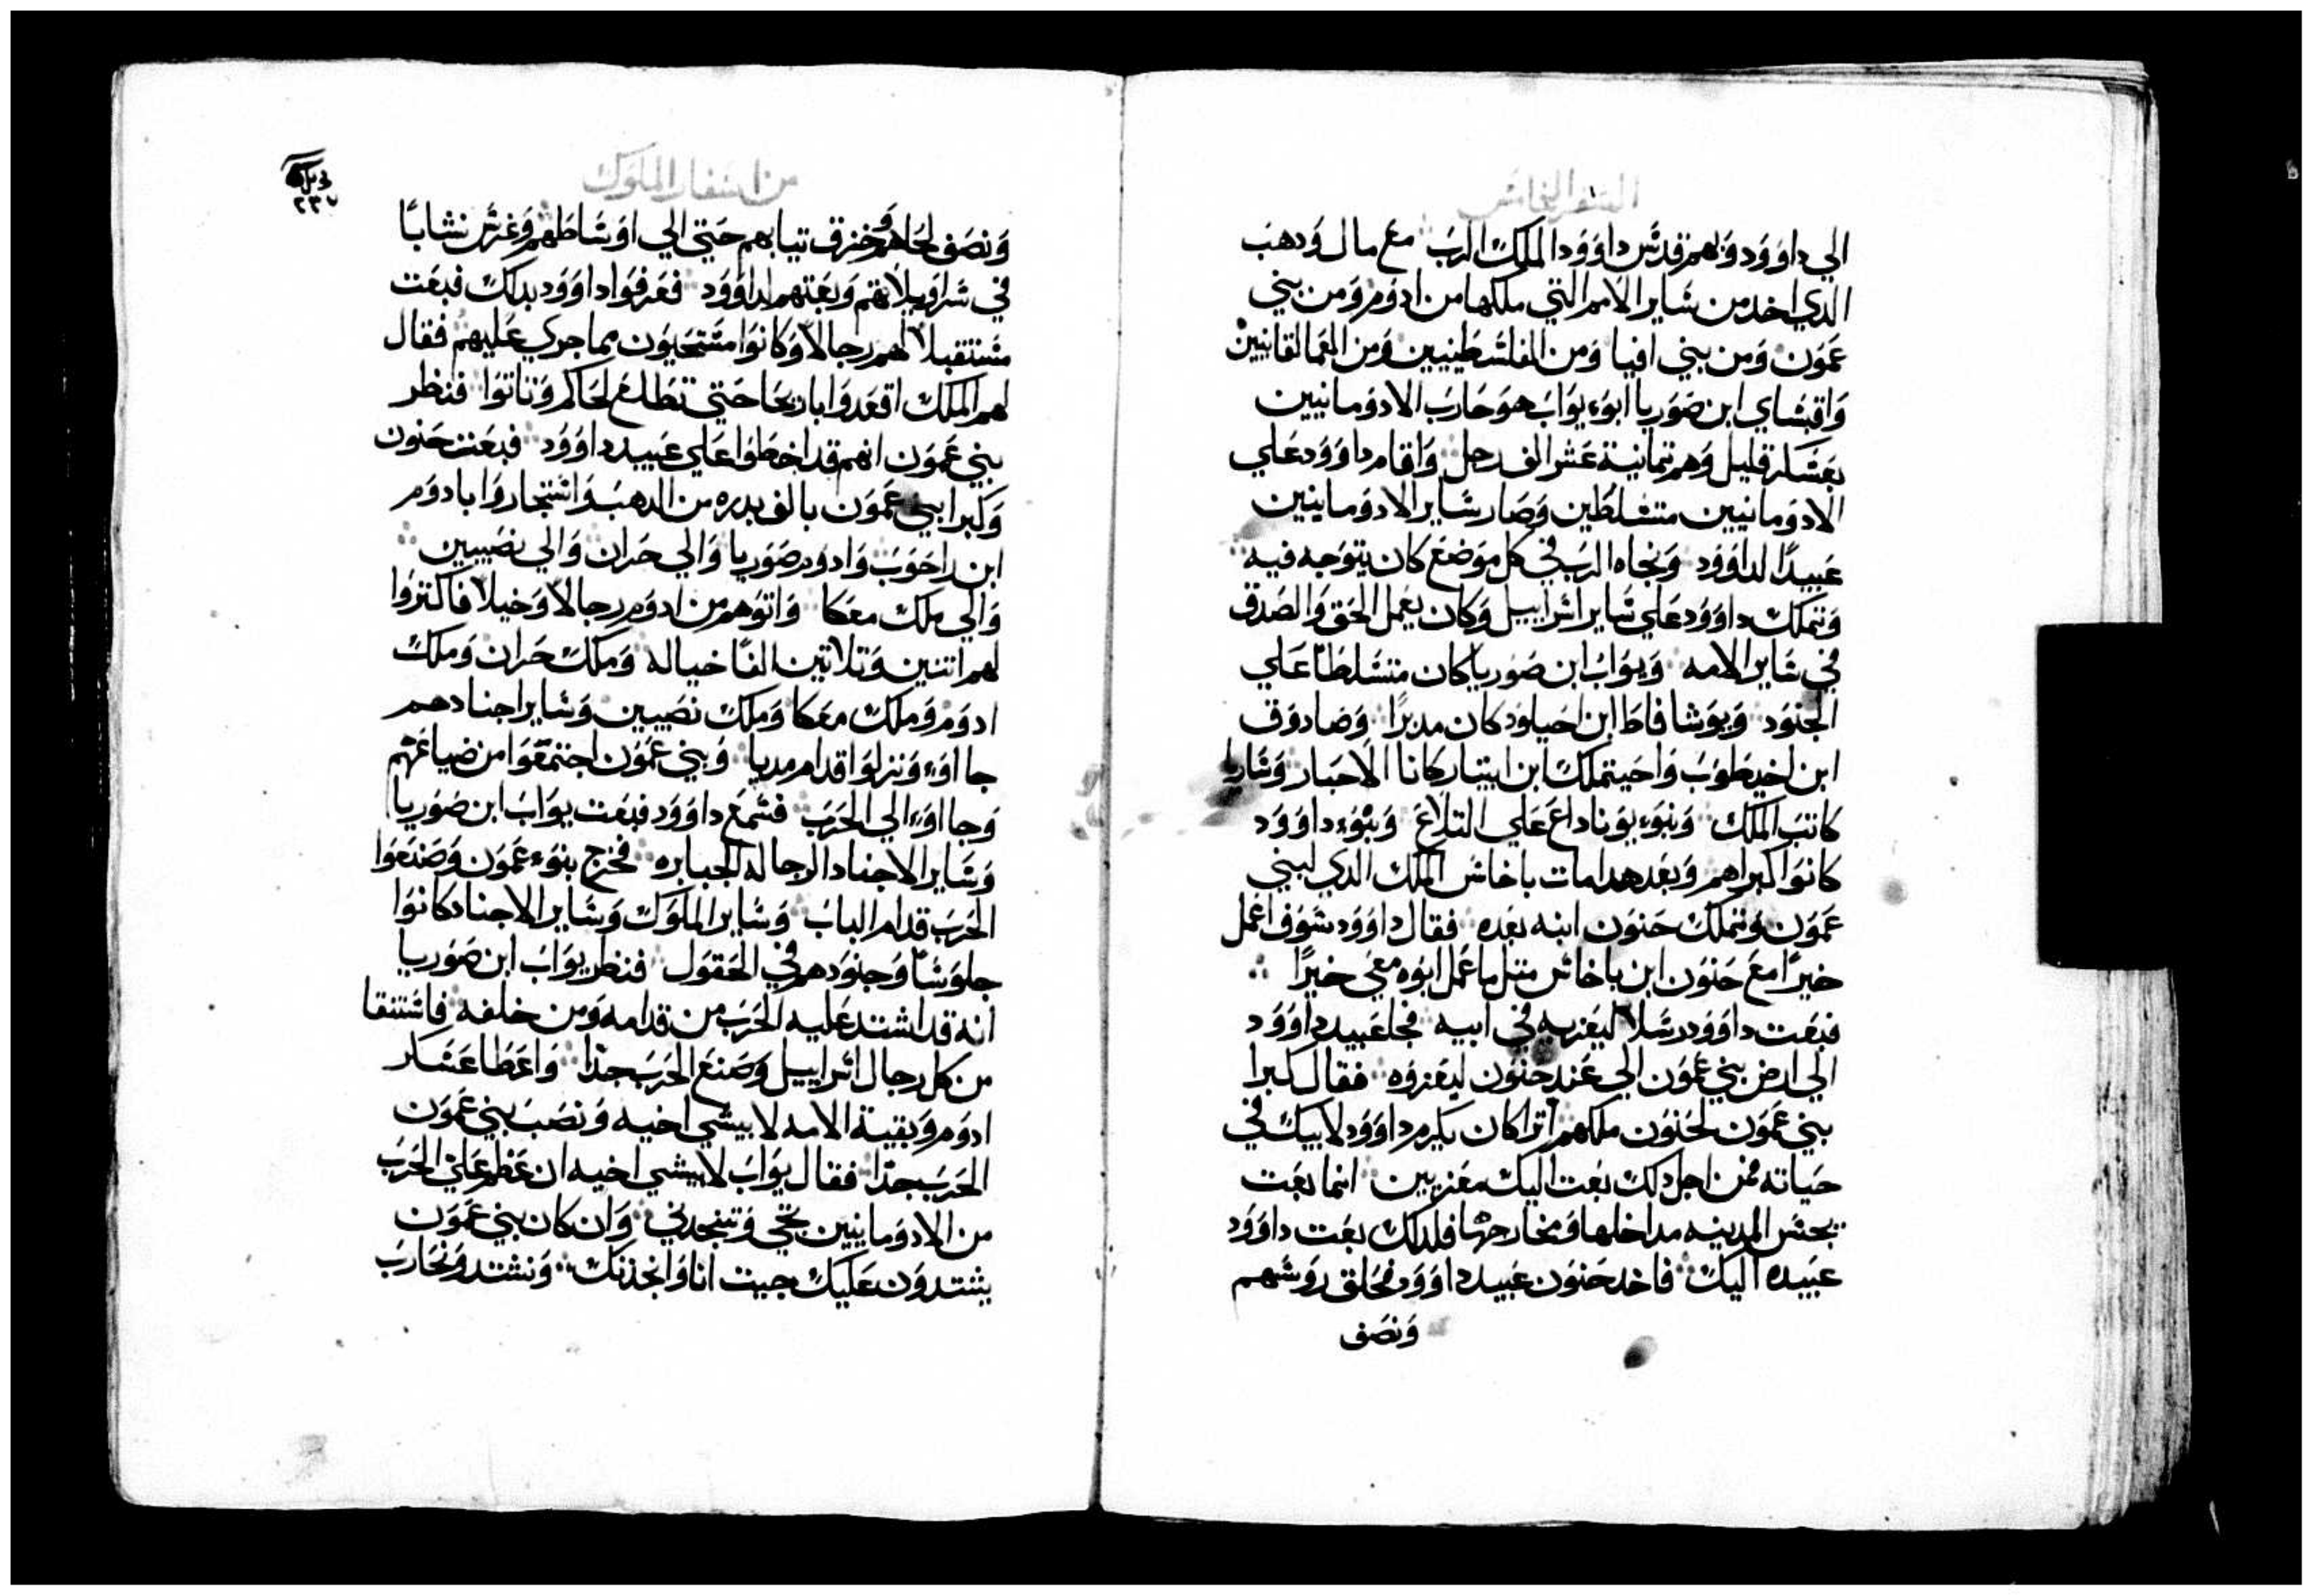 السفر الخامس
الي داوود وبهم قدس داوود الملك الرب مع مال ودهب
الدي اخد من ساير الامم التي ملكها من ادوم ومن بني
عمون ومن بني افيا ومن الفلسطينيين ومن العمالقانيين
واقبساي ابن صوريا ابوء يواب هو حارب الادومانيين
بعسكر قليل وهم تمانية عشر الف رجل واقام داوود علي
الادومانيين متسلطين وصار ساير الادومانيين
عبيدا لداوود ونجاه الرب في كل موضع كان يتوجه فيه
وتملك داوود علي ساير اسراييل وكان يعمل الحق والصدق
في ساير الامه ويواب ابن صوريا كان متسلطا علي
الجنود ويوشافاط ابن احيلود كان مدبرا وصادوق
ابن اخيطوب واحيتملك ابن ابيتار كانا الاحبار وساريا
كاتب الملك وبنوء يوناداع علي التلاع وبنوء داوود
كانوا كبراهم وبعد هدا مات باخاش الملك الدي لبني
عمون وتملك حنون ابنه بعده فقال داوود سوف اعمل
خيرا مع حنون ابن باخاش متل ما عمل ابوه معي خيرا
فبعت داوود رسلا ليعزيه في ابيه فجا عبيد داوود
الي ارض بني عمون الي عند حنون ليعزوه فقال كبرا
بني عمون لحنون ملكهم اترا كان يكرم داوود لابيك في
حياته فمن اجل دلك بعت اليك معزيين انما بعت
يجس المدينه مداخلها ومخارجها فلدلك بعت داوود
عبيده اليك فاخد حنون عبيد داوود فحلق روسهم
ونصف
من اسفار الملوك
٢٣٧
ونصف لحاهم وخزق تيابهم حتي الي اوساطهم وغرس نشابا
في سراويلاتهم وبعتهم لداوود فعرفوا داوود بدلك فبعت
مستقبلا لهم رجالا وكانوا مستحيون بما جري عليهم فقال
لهم الملك اقعدوا باريحا حتي تطلع لحاكم وتاتوا فنظر
بني عمون انهم قد اخطوا علي عبيد داوود فبعت حنون
وكبرا بني عمون بالف بدره من الدهب واستجاروا بادوم
ابن راحوب وادوم صوريا والي حران والي نصيبين
والي ملك معكا واتوهم من ادوم رجالا وخيلا فاكتروا
لهم اتنين وتلاتين الفا خياله وملك حران وملك
ادوم وملك معكا وملك نصيبين وساير اجنادهم
جااوء ونزلوا قدام مدبا وبني عمون اجتمعوا من ضياعهم
وجااوء الي الحرب فسمع داوود فبعت يواب ابن صوريا
وساير الاجناد الرجاله الجبابره فخرج بنوء عمون وصنعوا
الحرب قدام الباب وساير الملوك وساير الاجناد كانوا
جلوسا وجنودهم في الحقول فنظر يواب ابن صوريا
انه قد اشتد عليه الحرب من قدامه ومن خلفه فاستنقا
من كل رجال اسراييل وصنع الحرب جدا واعطا عساكر
ادوم وبقية الامه لابيشي اخيه ونصب بني عمون
الحرب جدا فقال يواب لابيشي اخيه ان عظم علي الحرب
من الادومانيين تجي وتنجدني وان كان بني عمون
يشتدون عليك جيت انا وانجدتك ونشتد ونحارب